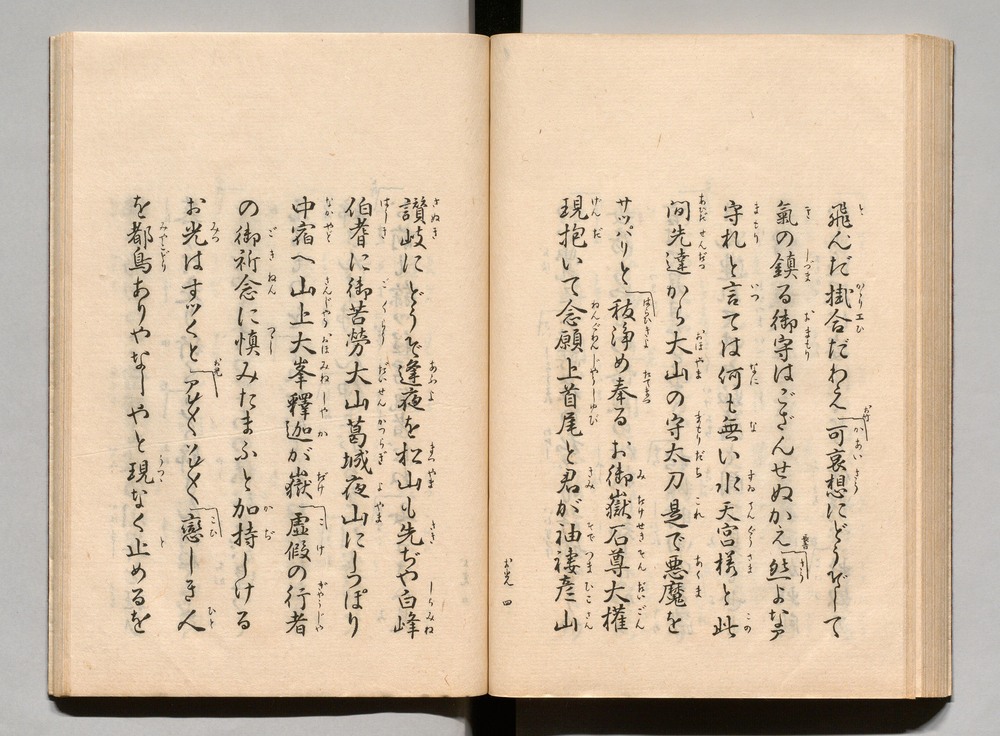 飛んだ掛合だわえ可哀想にどうぞして
氣の鎮る御守はござんせぬかえ然よなア
守れと言ては何も無い水天宮様と此
間先達から大山の守太刀是で悪魔を
サッパリと秡浄め奉るお御嶽石尊大權
現抱いて念願上首尾と君が袖褄彦山
お光 四
讃岐にどうぞ逢夜を松山も先ぢや白峰
伯耆に御苦勞大山葛城夜山にしつぽり
中宿へ山上大峯釋迦が嶽虚假の行者
の御祈念に慎みたまふと加持しける
お光はすツくと
戀しき人
を都鳥ありやなしやと現なく止めるを